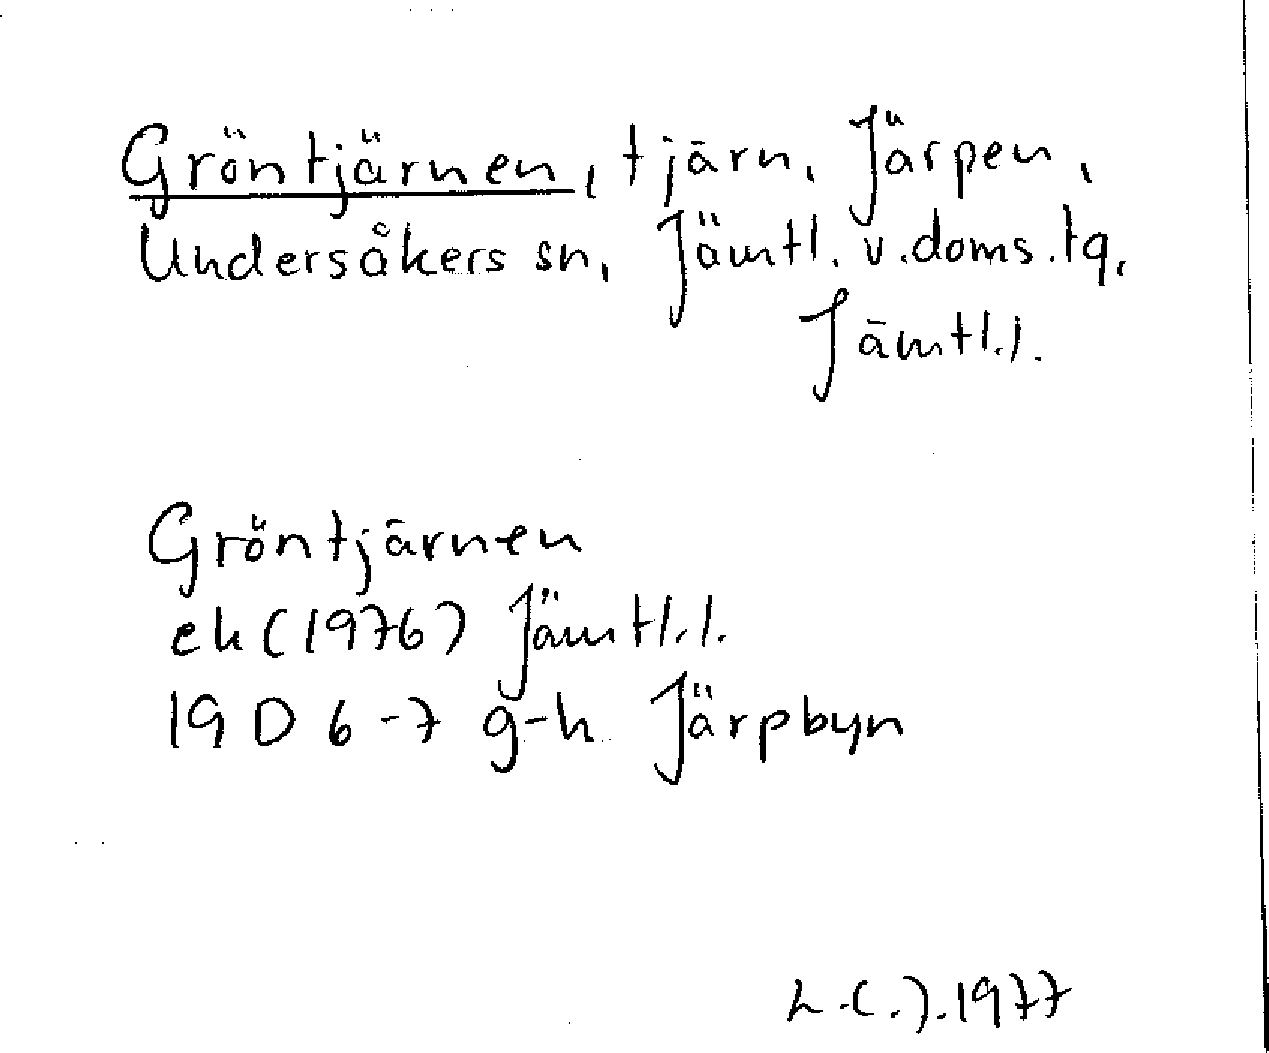 Gröntjärnen, tjärn, Järpen,
Undersåkers sn, Jämtl. v. doms.tg,
Jämtl.l.
Gröntjärnen
ek (1976) Jämtl.l.
19 D 6-7 g-h Järpbyn
1977